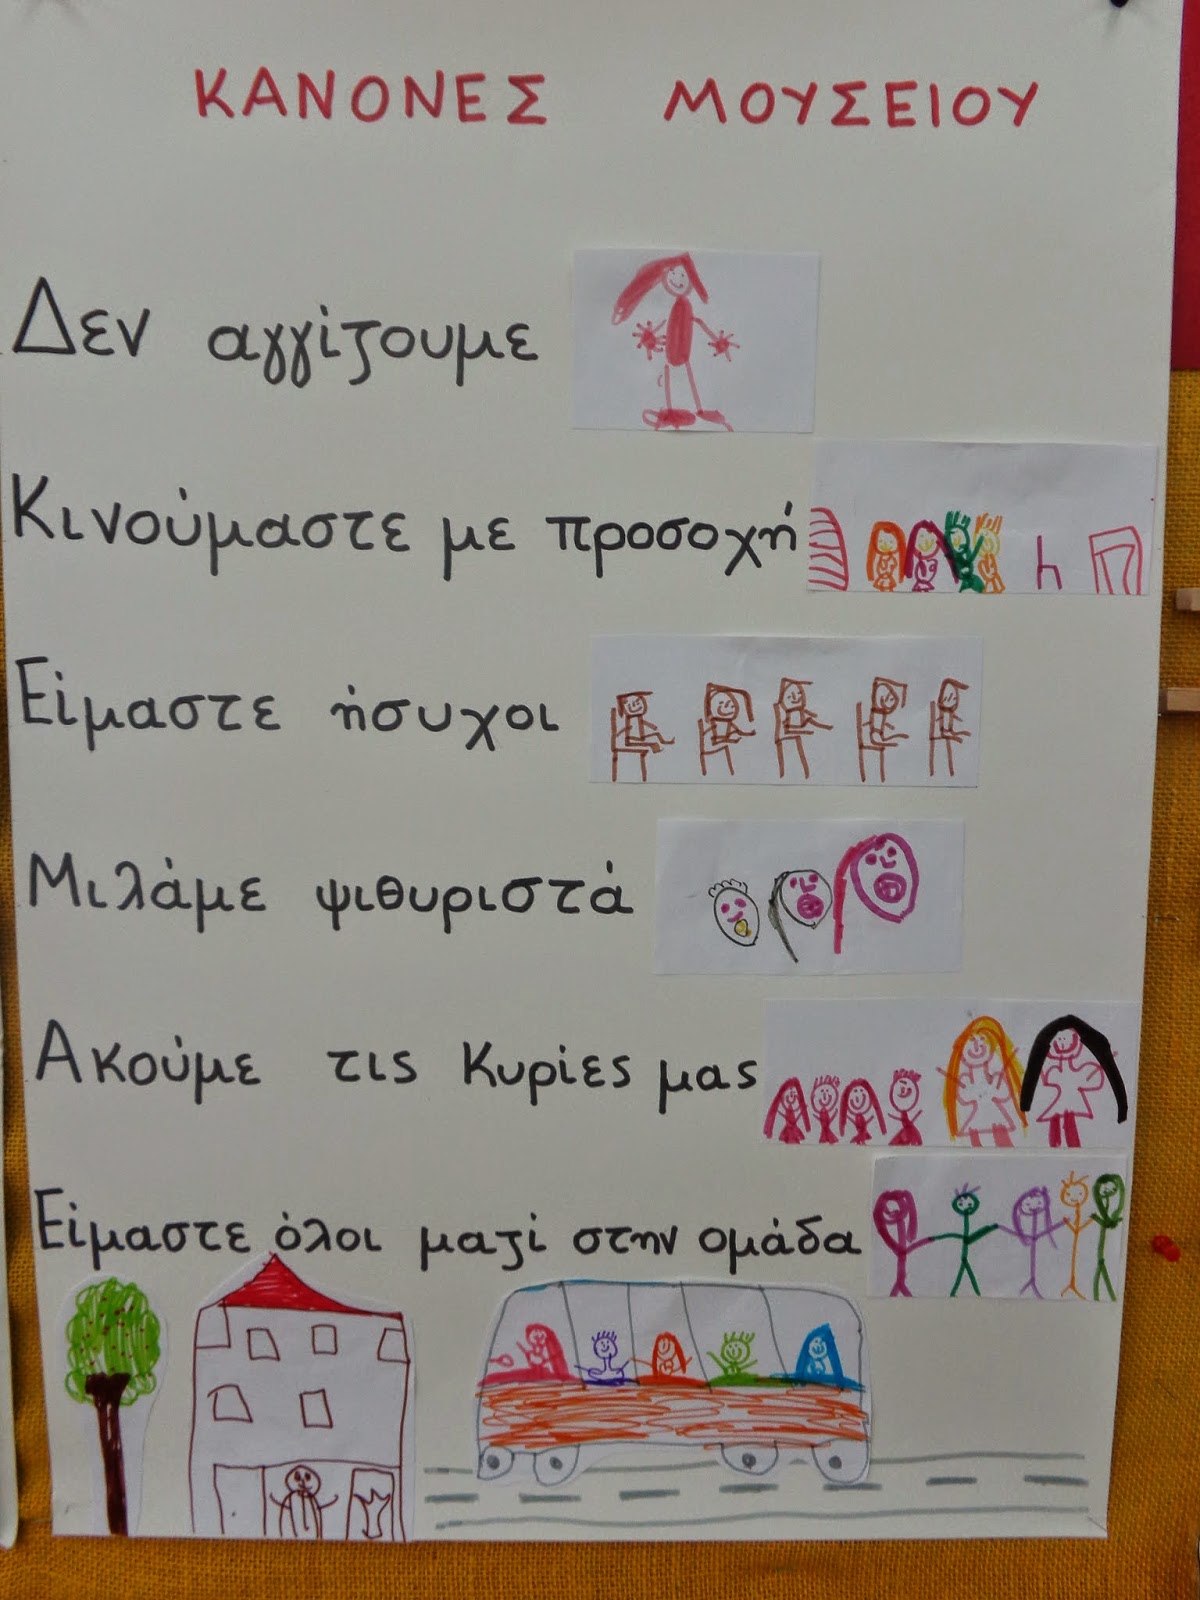 ΚΑΝΟΝΕΣ ΜΟΥΣΕΙΟΥ
Δεν αγγίζουμε
Κινούμαστε με προσοχή
Είμαστε ήσυχοι
Μιλάμε ψιθυριστά
Ακούμε τις Κυρίες μας
Είμαστε όλοι μαζί στην ομάδα